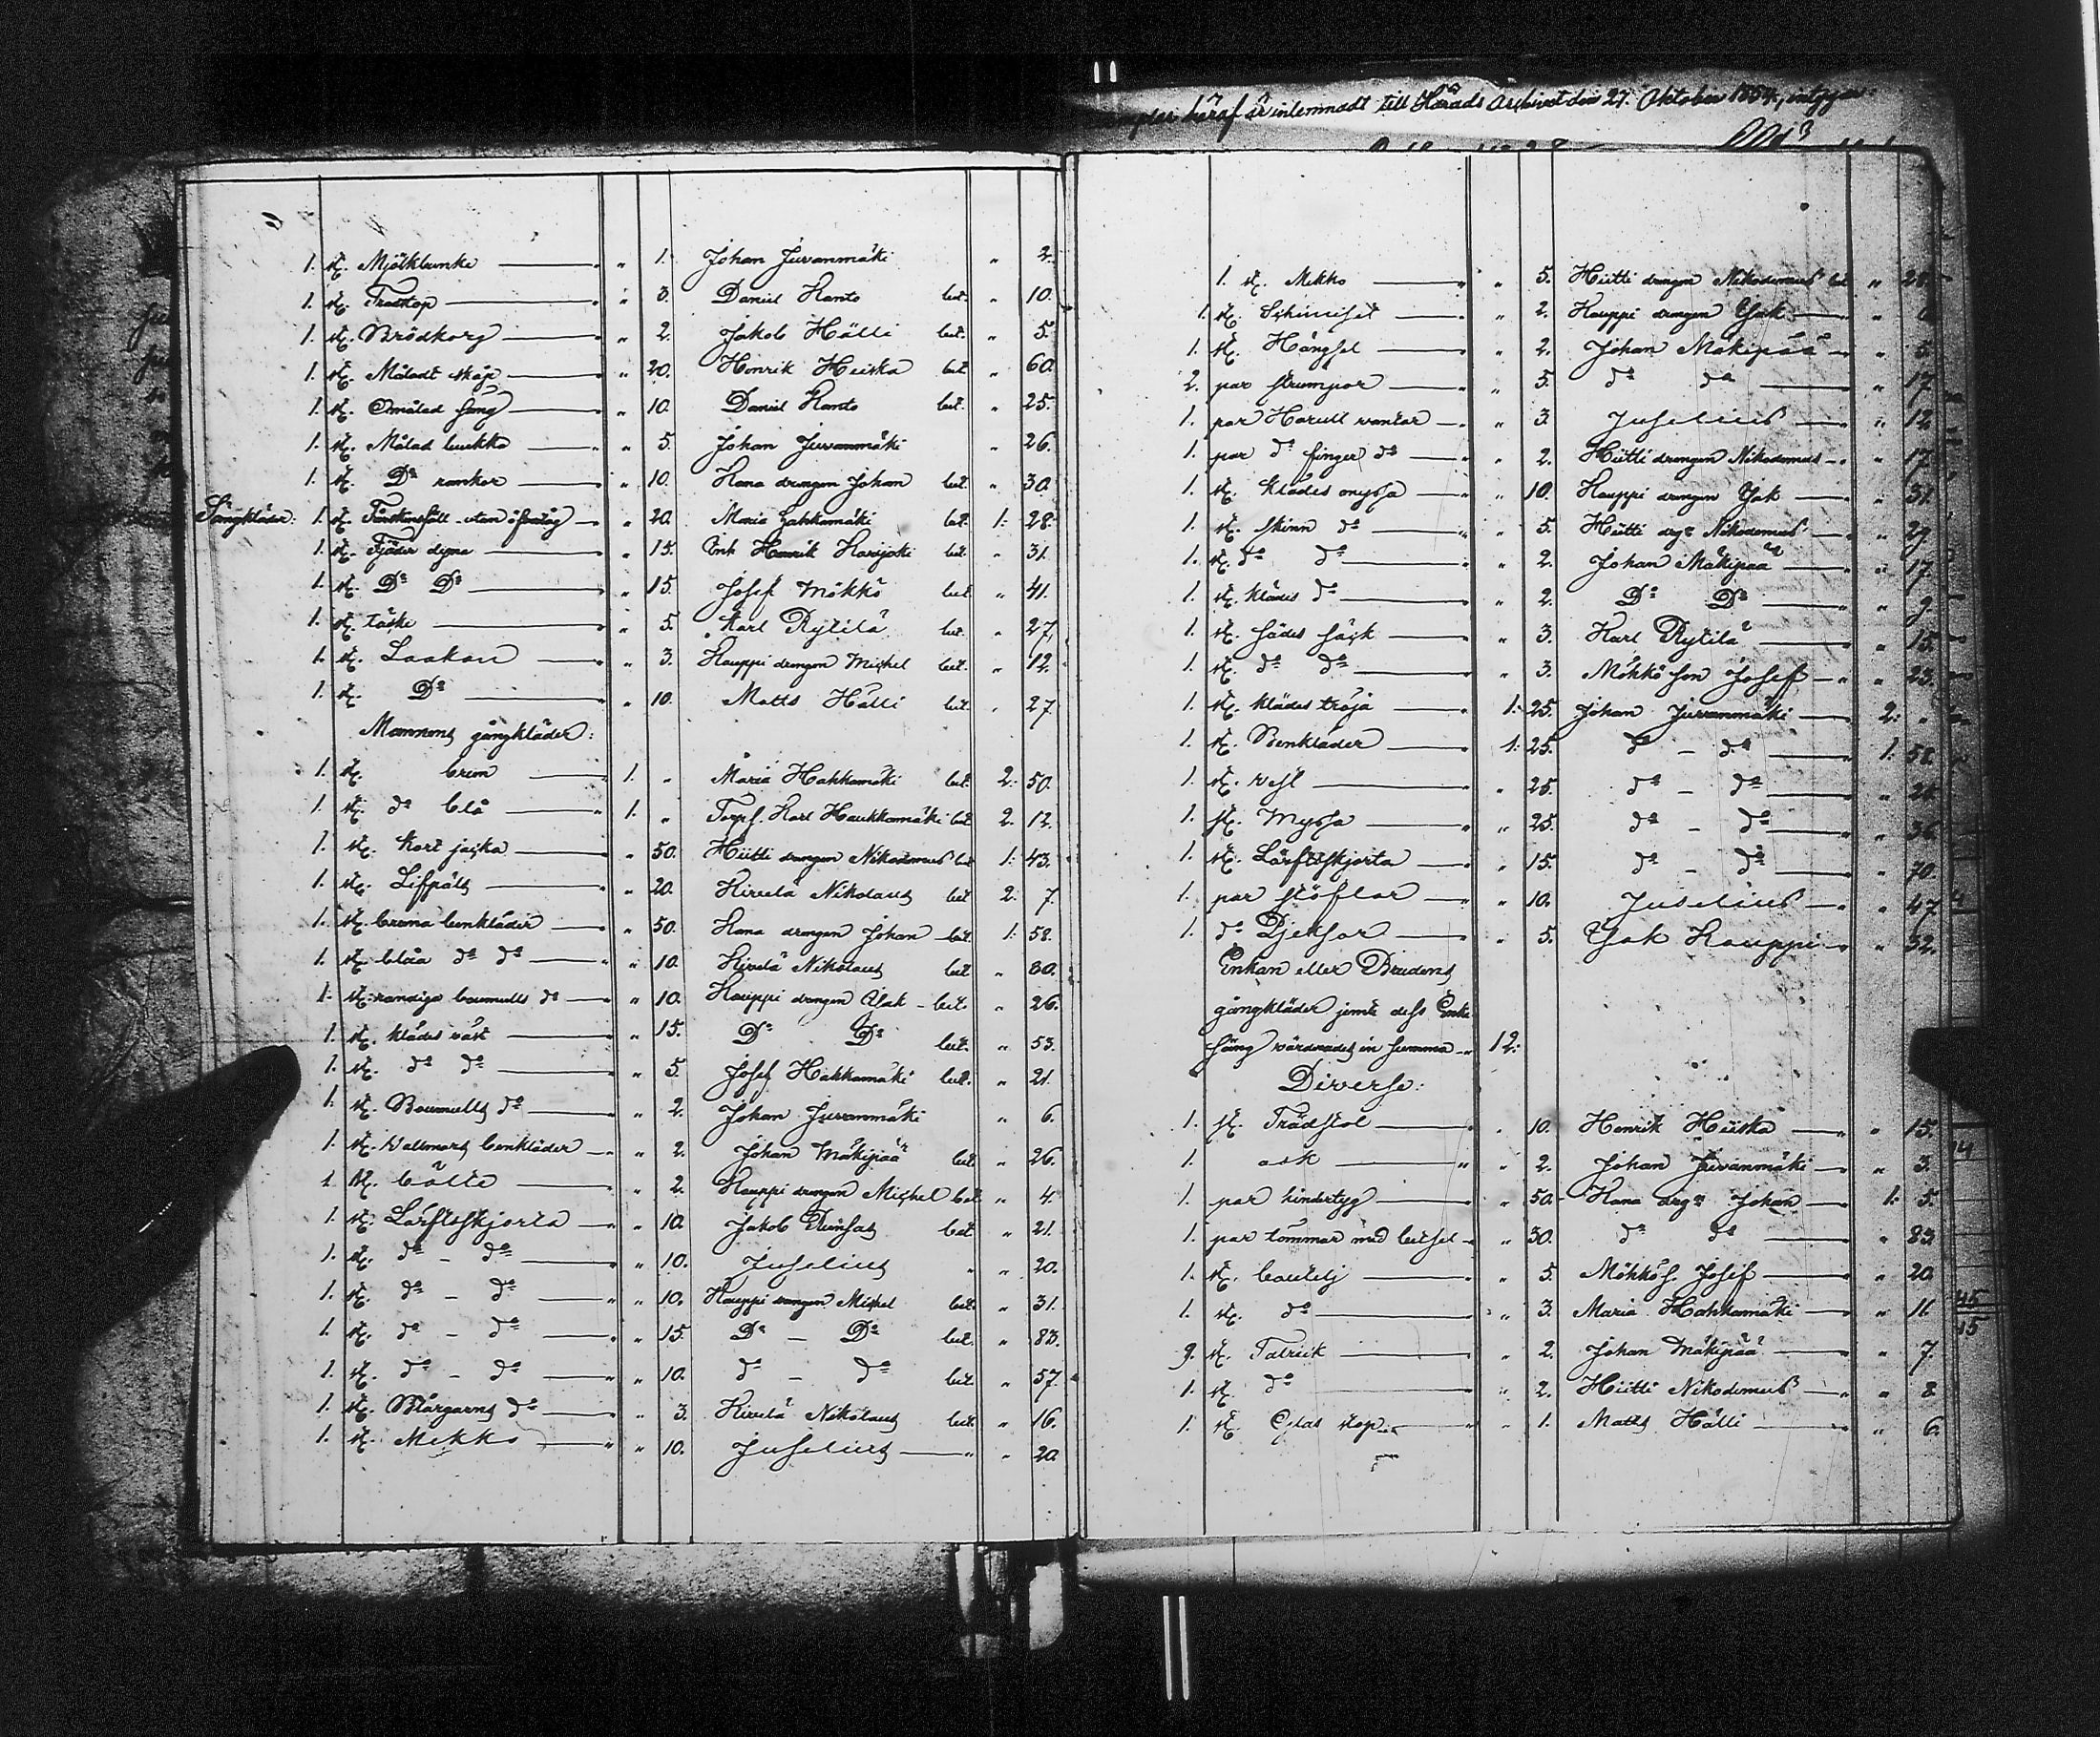 häraf är inlemnadt till Härads Archivet den 27. Oktober 1854, intygar
1. st. Mjölkbunke — " 1. Johan Juvanmäki " 2.
1. st. Trästop — " 3. Daniel Kanto bet. " 10.
1. st. Brödkorg — " 2. Jakob Hälli bet. " 5.
1. st. Måladt skåp — " 20. Henrik Heiska bet " 60.
1. st. Omålad säng — " 10. Daniel Kanto bet. " 25.
1. st. Målad bunkka — " 5. Johan Juvanmäki " 26.
1. st. Do — " 10. Kana drengen Johan bet. " 30.
Sängkläder: 1. st. Fårskinsfäll utan öfvertåg — " 20. Maria Hakkamäki bet. 1: 28.
1. st. Fjäder dyna — " 15. Enk Henrik Harjoki bet. " 31.
1. st. Do Do — " 15. Josef Mökkö bet. " 41.
1. st. täcke — " 5. Karl Rytilä bet. " 27.
1. st. Laakan — " 3. Kauppi drengen Michel bet. " 12.
1. st. Do — " 10. Matts Hälli bet. " 27.
Mannens gångkläder:
1. st. brun — 1. " Maria Hakkamäki bet. 2: 50.
1. st. do blå — 1. " Torp. Karl Haukkamäki bet 2. 12.
1. st. Kort jacka — " 50. Hütti drengen Nikodemus bet 1: 43.
1. st. Lifpäls — " 20. Hirvelä Nikolaus bet 2. 7.
1. st. bruna benkläder — " 50. Kana drengen Johan bet. 1: 58.
1. st. blåa do do — " 10. Hirvelä Nikolaus bet " 80.
1. st. randiga boumulls do — " 10. Kauppi drengen Isak bet. " 26.
1. st. klädes väst — " 15. Do Do bet. " 53.
1. st. do do — " 5. Josef Hakkamäki bet. " 21.
1. st. Boumulls do — " 2. Johan Juvanmäki " 6.
1. st. Wallmars benkläder — " 2. Johan Mäkipää bet " 26.
1. st. bälte — " 2. Kauppi drengen Michel bet " 4.
1. st. Lärftsskjorta — " 10. Jakob bet " 21.
1. st. do - do — " 10. Juselius " 20.
1. st. do - do — " 10. Kauppi drengen Michel bet. " 31.
1. st. do - do — " 15. Do - Do bet. " 83.
1. st. do - do — " 10. do - do bet. " 57.
1. st. Blårgarns do — " 3. Hirvelä Nikolaus bet. " 16.
1. st. Mekko — " 10. Juselius — " 20.
1. st. Mekko — " 5. Hütti drengen Nikodemus bet " 28.
1. st. — " 2. Kauppi drengen Isak "
1. st. Hängsel — " 2. Johan Mäkipää — " 5.
2. par strumpor — " 5. do do — " 17.
1. par Harull vantar — " 3. Juselius — " 12.
1. par do finger do — " 2. Hütti drengen Nikodemus — " 17.
1. st. klädes myssa — " 10. Kauppi drengen Isak — " 31.
1. st. skinn do — " 5. Hütti drgn Nikodemus — " 29.
1. st. do do — " 2. Johan Mäkipää — " 17.
1. st. klädes do — " 2. Do Do — " 9.
1. st. sädes säck — " 3. Karl Rytilä — " 15.
1. st. do do — " 3. Mökkö son Josef — " 23.
1. st. klädes tröja — 1: 25. Johan Juvanmäki — 2: "
1. st. Benkläder — 1: 25. do - do — 1: 58.
1. st. vest — " 25. do - do — "
1. st. Myssa — " 25. do - do — " 36.
1. st. Lärftsskjorta — " 15. do - do — " 70.
1. par stöflor — " 10. Juselius — " 47.
1. do Pjeksor — " 5. Isak Kauppi — " 32.
Enkan eller Brudens
gångkläder jemte dess Enke
säng värderades in summa — 12:
Diverse:
1. st. Trädstol — " 10. Henrik Heiska — " 15.
1. ask — " 2. Johan Juvanmäki — " 3.
1. par hindertyg — " 50. Kana drgn Johan — 1: 5.
1. par tömmar med betsel — " 30. do do " 83.
1. st. boutelj — " 5. Mökkö s. Josef — " 20.
1. st. do — " 3. Maria Hakkamäki — " 11.
9. st. Talrik — " 2. Johan Mäkipää — " 7.
1. st. do — " 2. Hütti Nikodemus — " 8.
1. st. Glas stop — " 1. Matts Hälli — " 6.